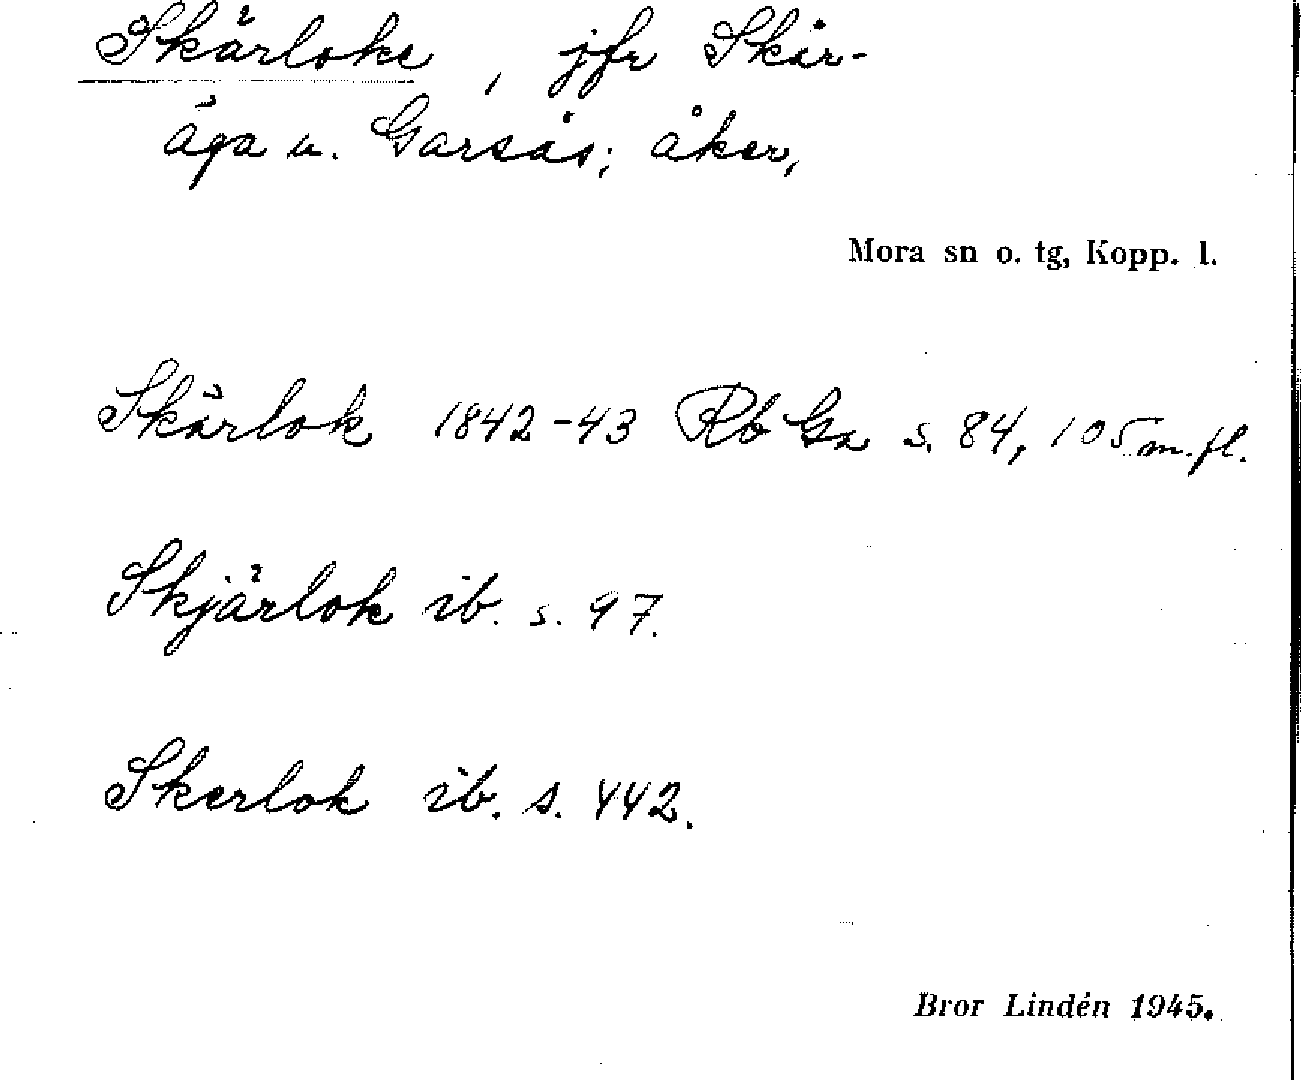 Skärloke, jfr Skär-
äga u. Garsås; åker,
Mora sn o. tg, Kopp. l.
Skärlok 1842-43 Rb Ga s. 84, 105 m.fl.
Skjärlok ib. s. 97.
Skerlok ib. s. 442.
Bror Lindén 1945.